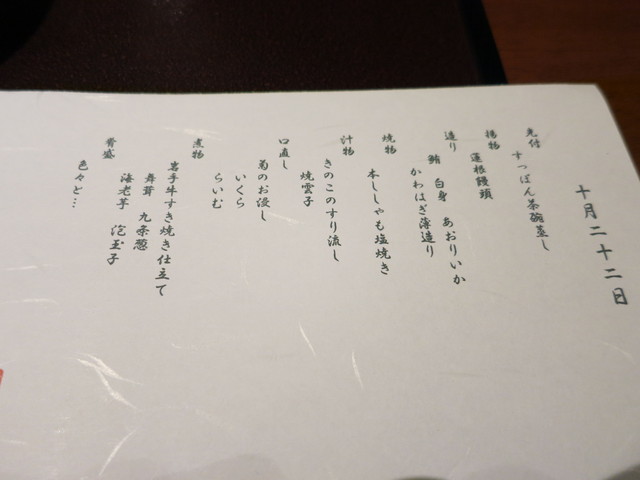 十月二十二日
先付
すっぽん茶碗蒸し
揚物
蓮根饅頭
造り
鮪 白身 あおりいか
かわはぎ薄造り
焼物
本ししゃも塩焼き
汁物
きのこのすり流し
焼雲子
口直し
菊のお浸し
いくら
らいむ
煮物
岩手牛すき焼き仕立て
舞茸 九条葱
海老芋 泡玉子
肴盛
色々と…